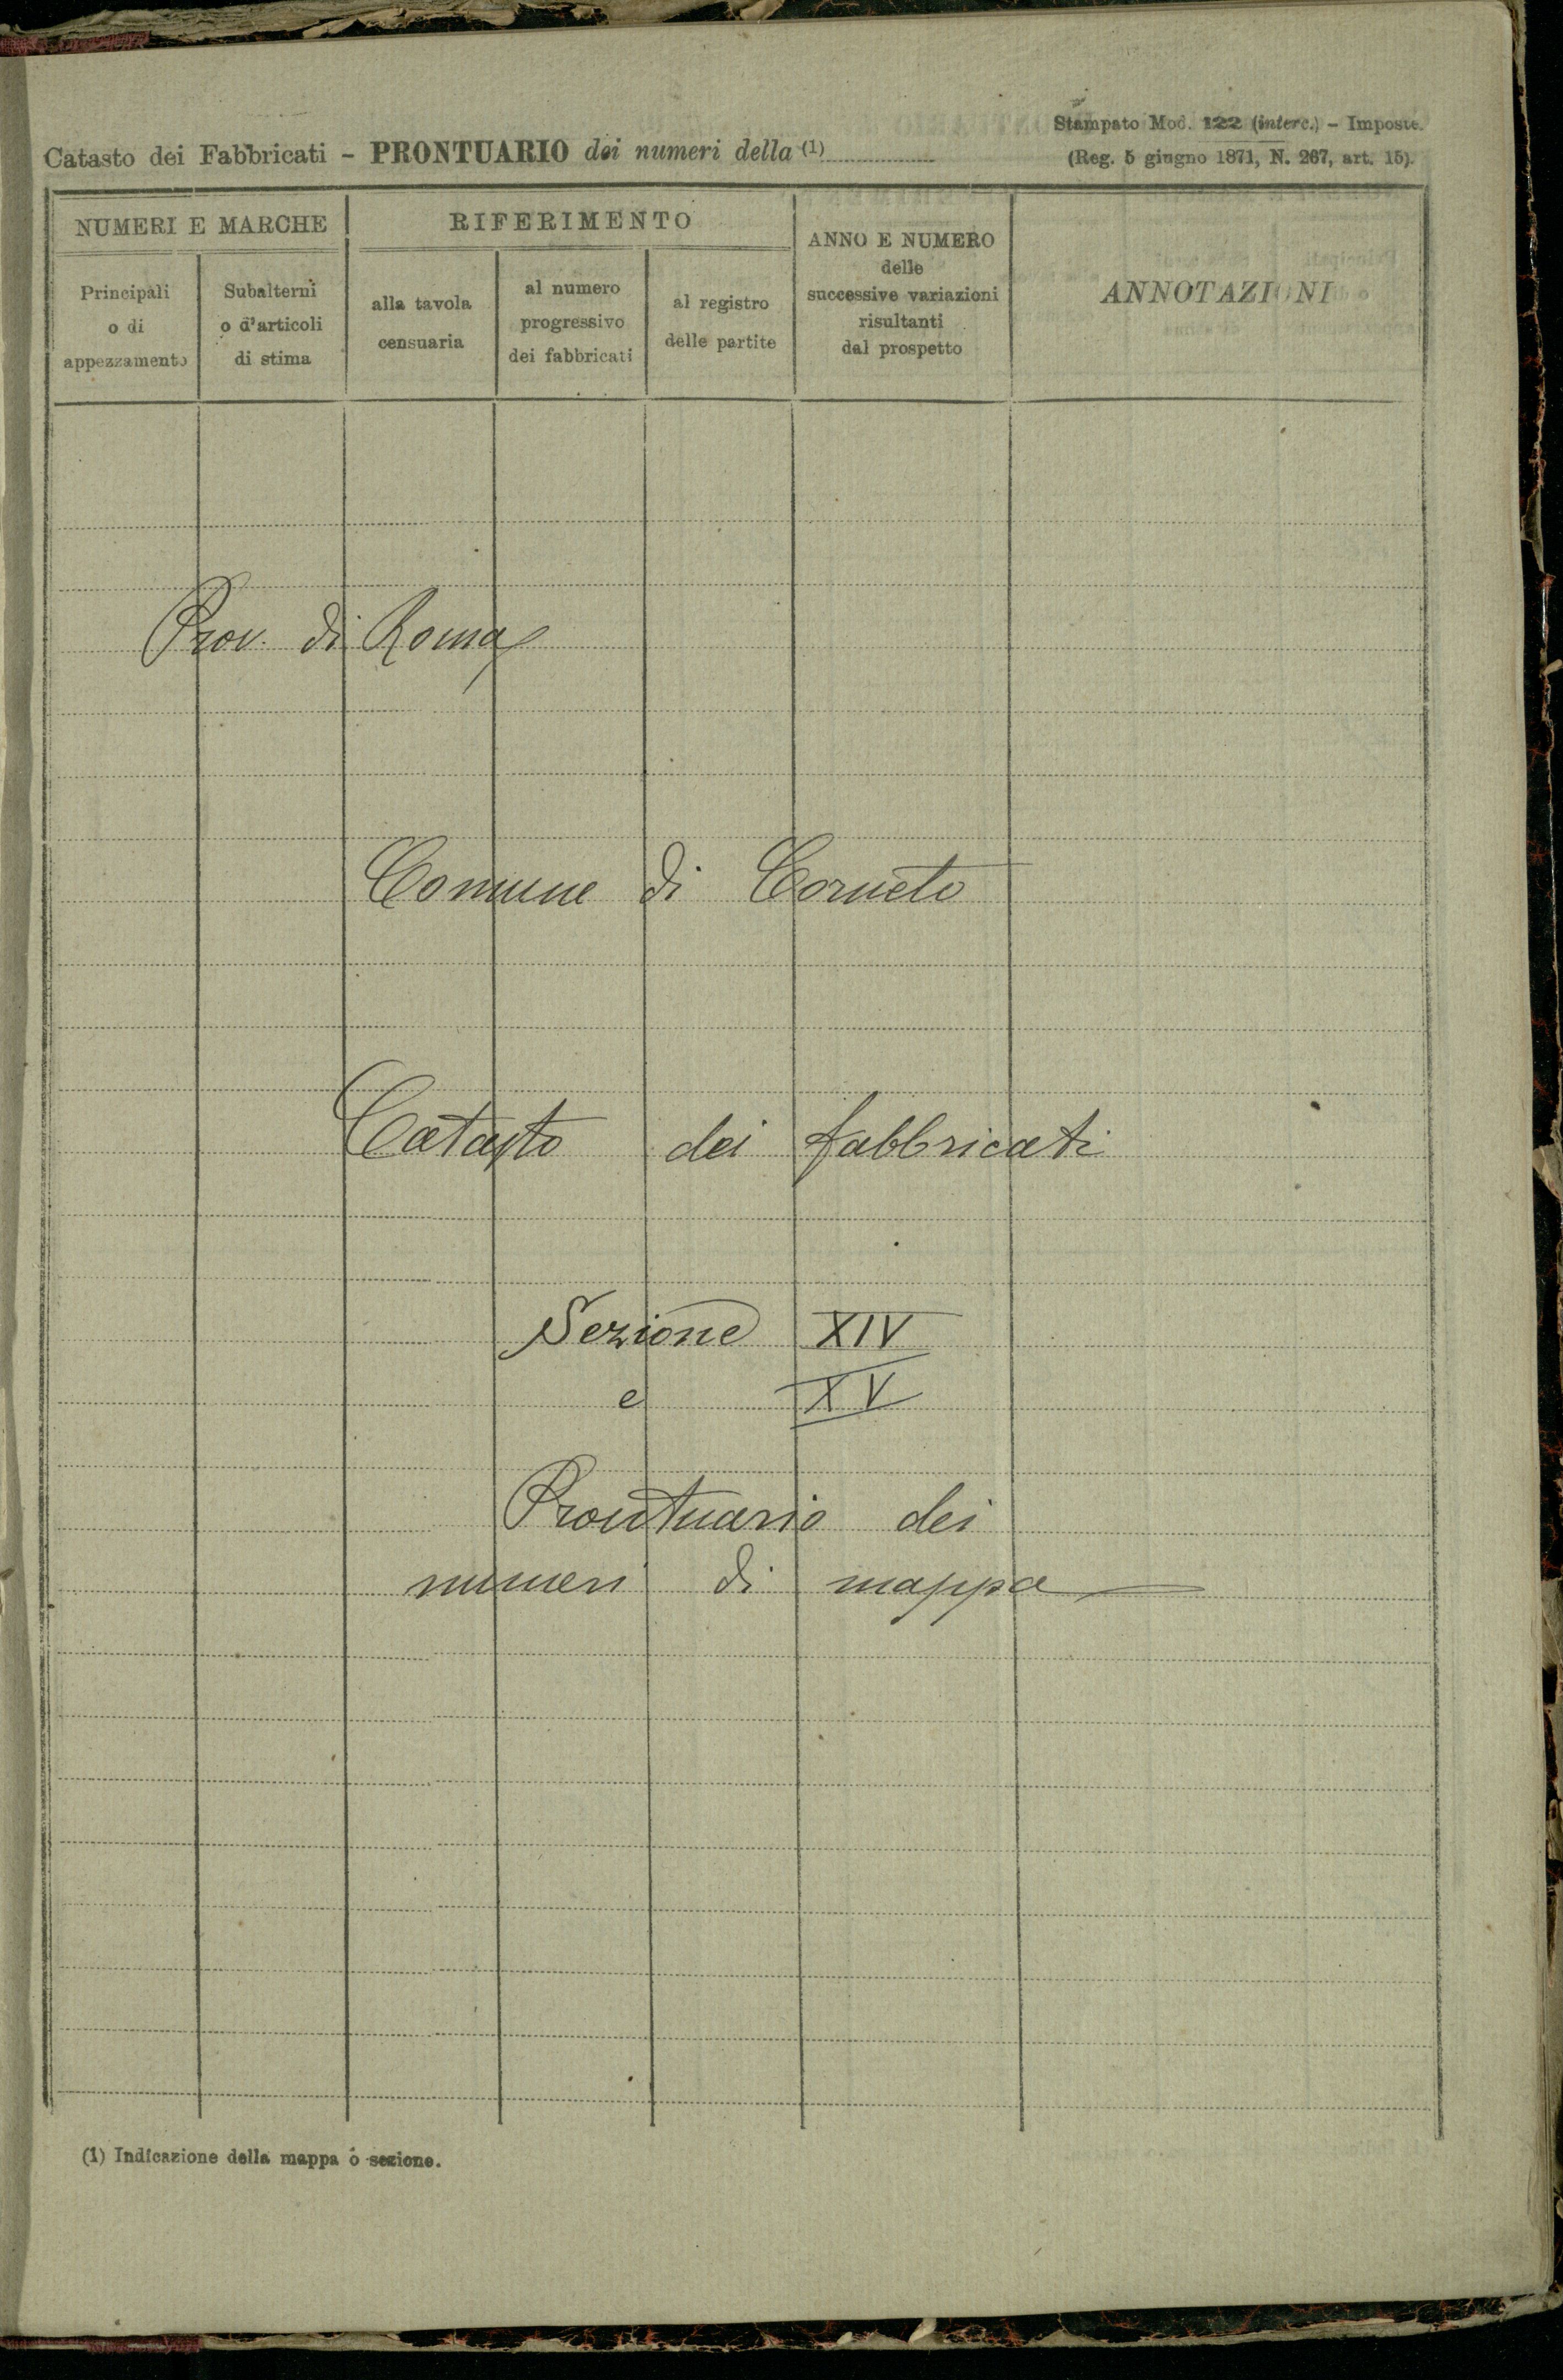 Stampato Mod. 122 (interc.) - Imposte.
Catasto dei Fabbricati - PRONTUARIO dei numeri della (1)
(Reg. 5 giugno 1871, N. 267, art. 15).
NUMERI E MARCHE
RIFERIMENTO
ANNO E NUMERO
delle
successive variazioni
risultanti
dal prospetto
ANNOTAZIONI
Principali
o di
appezzamento
Subalterni
o d'articoli
di stima
alla tavola
censuaria
al numero
progressivo
dei fabbricati
al registro
delle partite
Prov. di Roma
Comune di Corneto
Catasto dei fabbricati
Sezione XIV
e XV
Prontuario dei
numeri di mappa
(1) Indicazione della mappa o sezione.